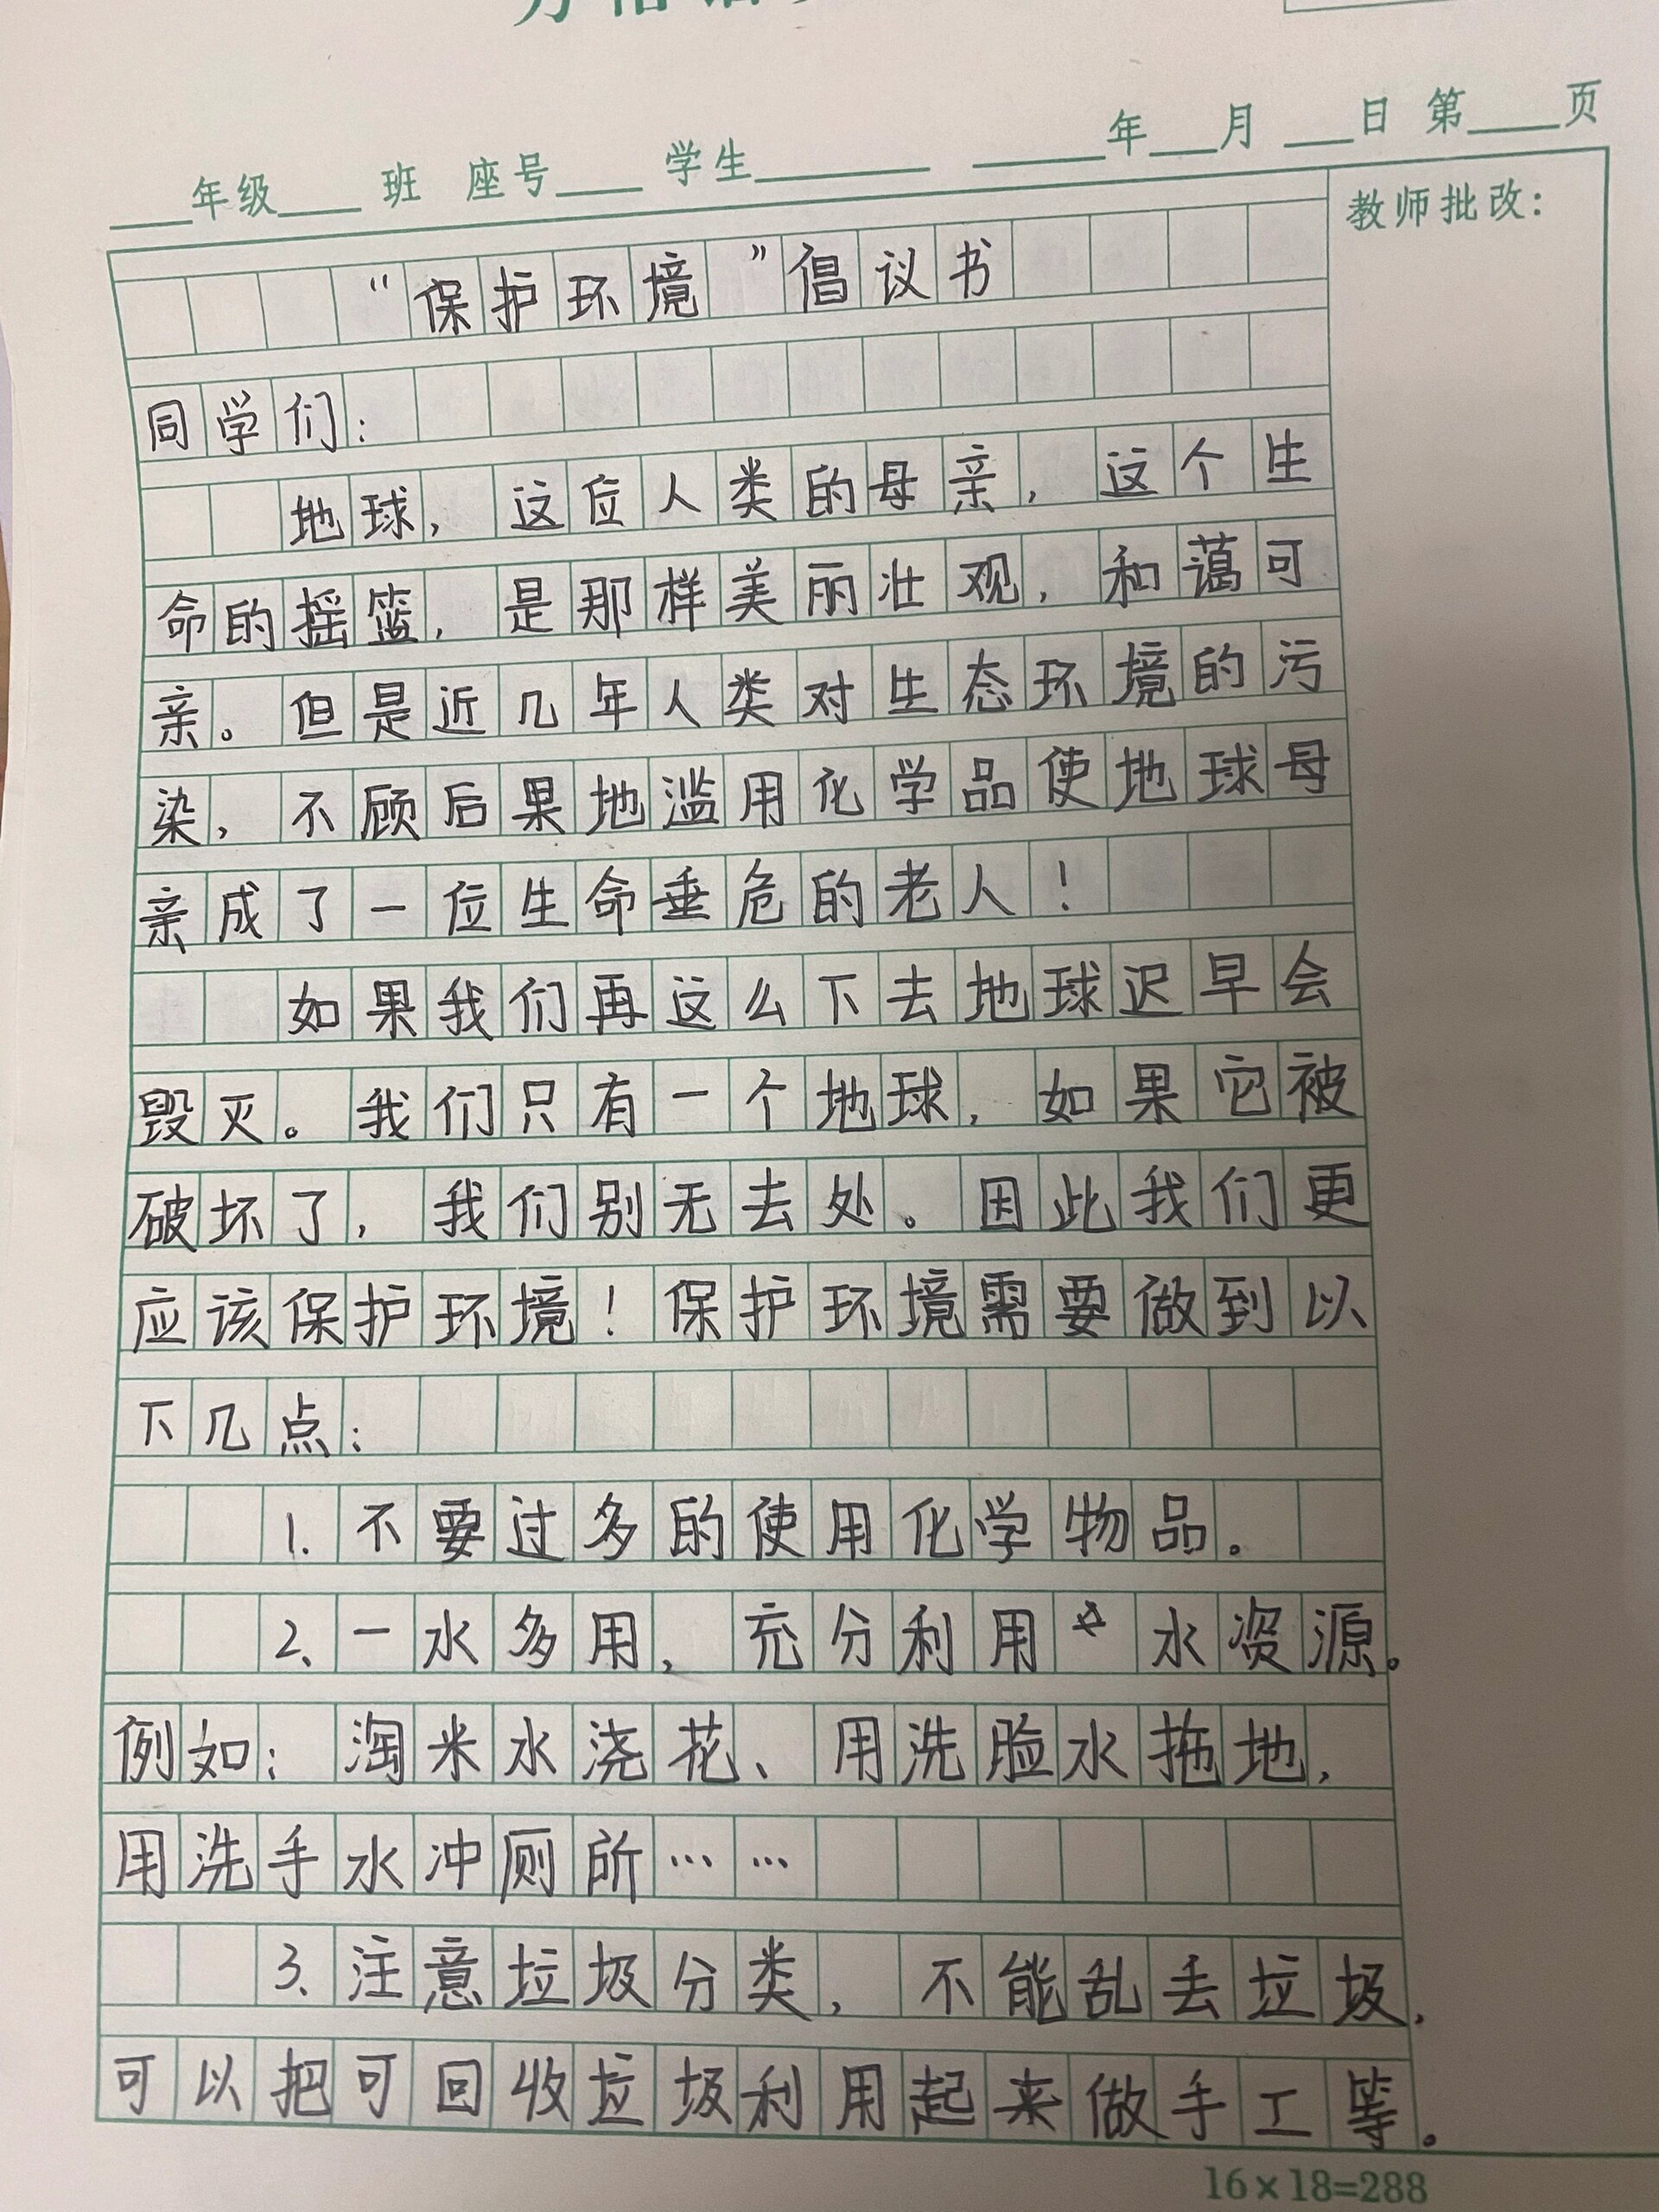 ___年级___ 班 座号___ 学生______ _____年___月___日 第____页
教师批改：
“保护环境”倡议书
同学们：
地球，这位人类的母亲，这个生
命的摇篮，是那样美丽壮观，和蔼可
亲。但是近几年人类对生态环境的污
染，不顾后果地滥用化学品使地球母
亲成了一位生命垂危的老人！
如果我们再这么下去地球迟早会
毁灭。我们只有一个地球，如果它被
破坏了，我们别无去处。因此我们更
应该保护环境！保护环境需要做到以
下几点：
1.不要过多的使用化学物品。
2、一水多用，充分利用水资源。
例如：淘米水浇花、用洗脸水拖地，
用洗手水冲厕所……
3、注意垃圾分类，不能乱丢垃圾，
可以把可回收垃圾利用起来做手工等。
16×18=288